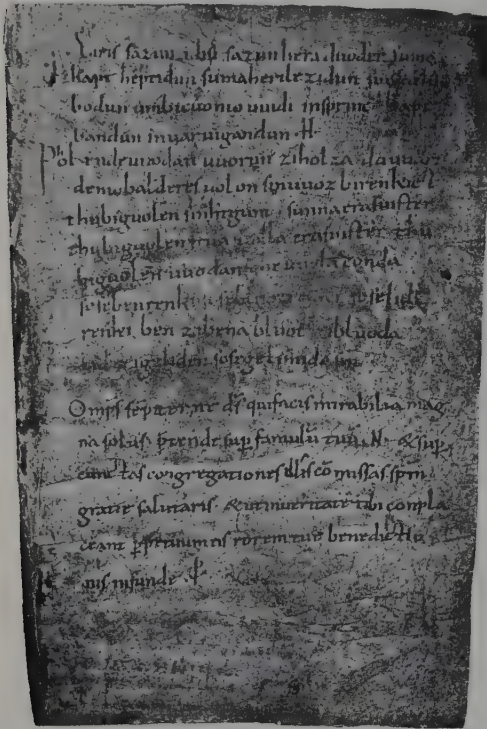 Eiris sazun idisi sazun hera duoder suma
hapt heptidun sumaherilezidun sumaclu
bodun umbicuonio uuidi insprinc hapt
bandun inuar uigandun ·H·
Phol endeuuodan uuorun ziholza du uuart
demobalderes uolon sinuuoz birenkict
thubiguolen sinhtgunt · sunna erasuister
thubiguolen friia uolla erasuister thu
biguolen uuodan sohe uuolaconda
sosebenrenki sosebluotrenki soselidi
renki ben zibena bluot zibluoda
lid zigeliden sosegelimida sin
Omps sēpiterne dś quifacis mirabilia mag
na solus · p̄tende sup̄ famulū tuū ·N· &sup̄
cunctas congregationes illis cōmissas sp̄m
gratie salutaris · &utinueritate tibi compla
ceant p̄petuum eis rorem tue benedicti
onis infunde · p̄